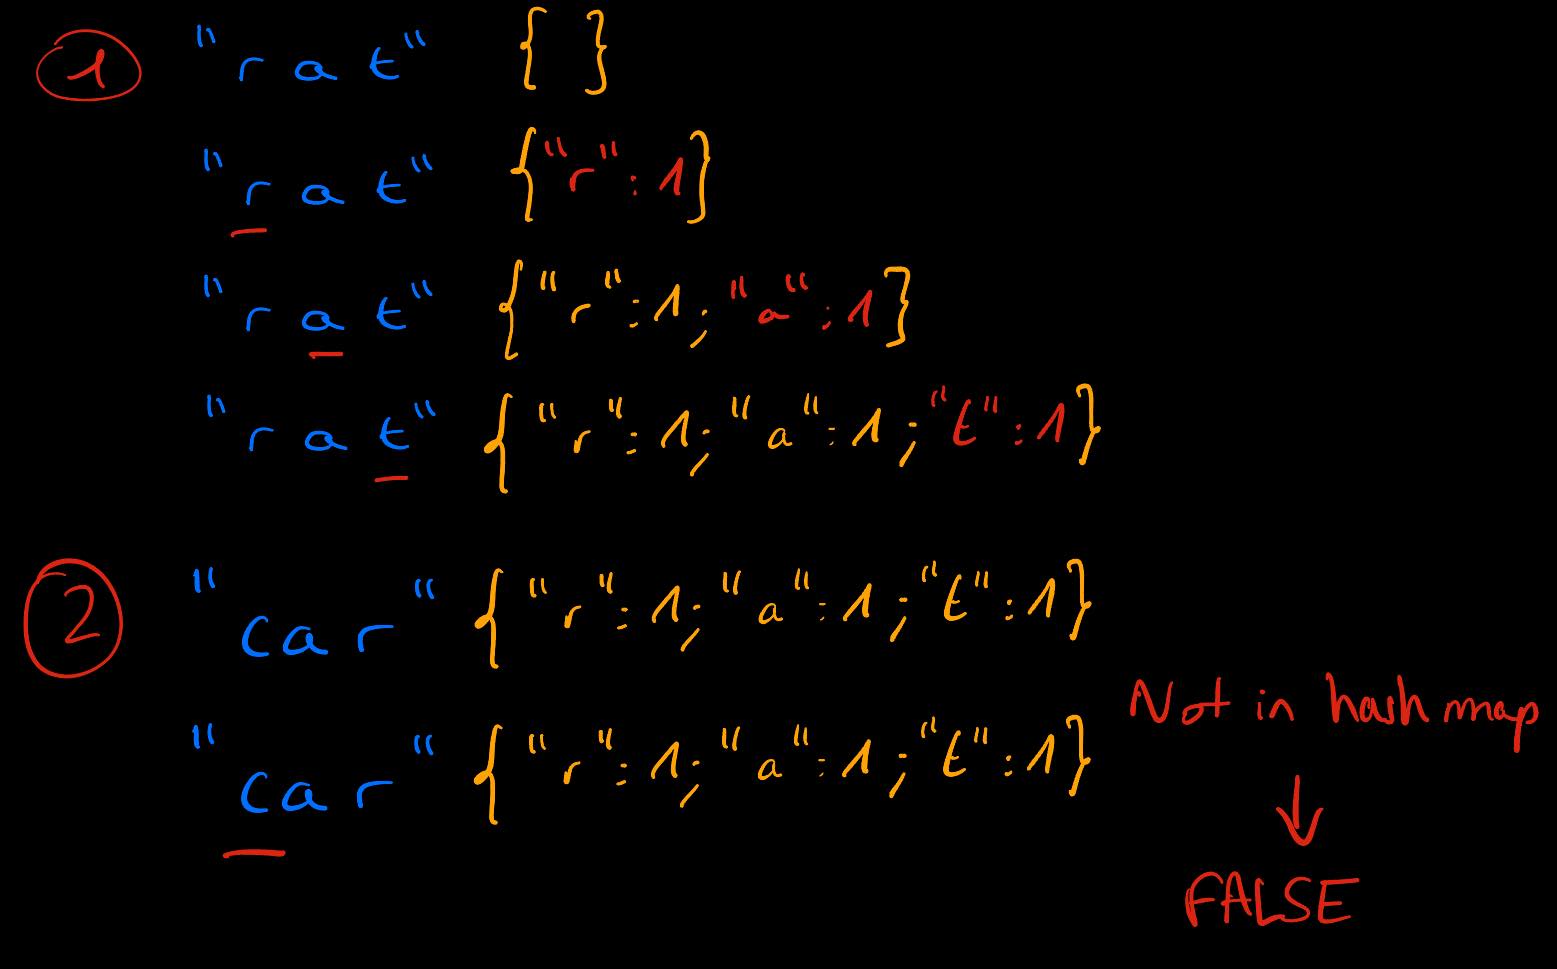 1 "rat" { }
"rat" {"r": 1}
"rat" {"r": 1; "a": 1}
"rat" {"r": 1; "a": 1; "t": 1}
2 "car" {"r": 1; "a": 1; "t": 1}
"car" {"r": 1; "a": 1; "t": 1}
Not in hash map
↓
FALSE